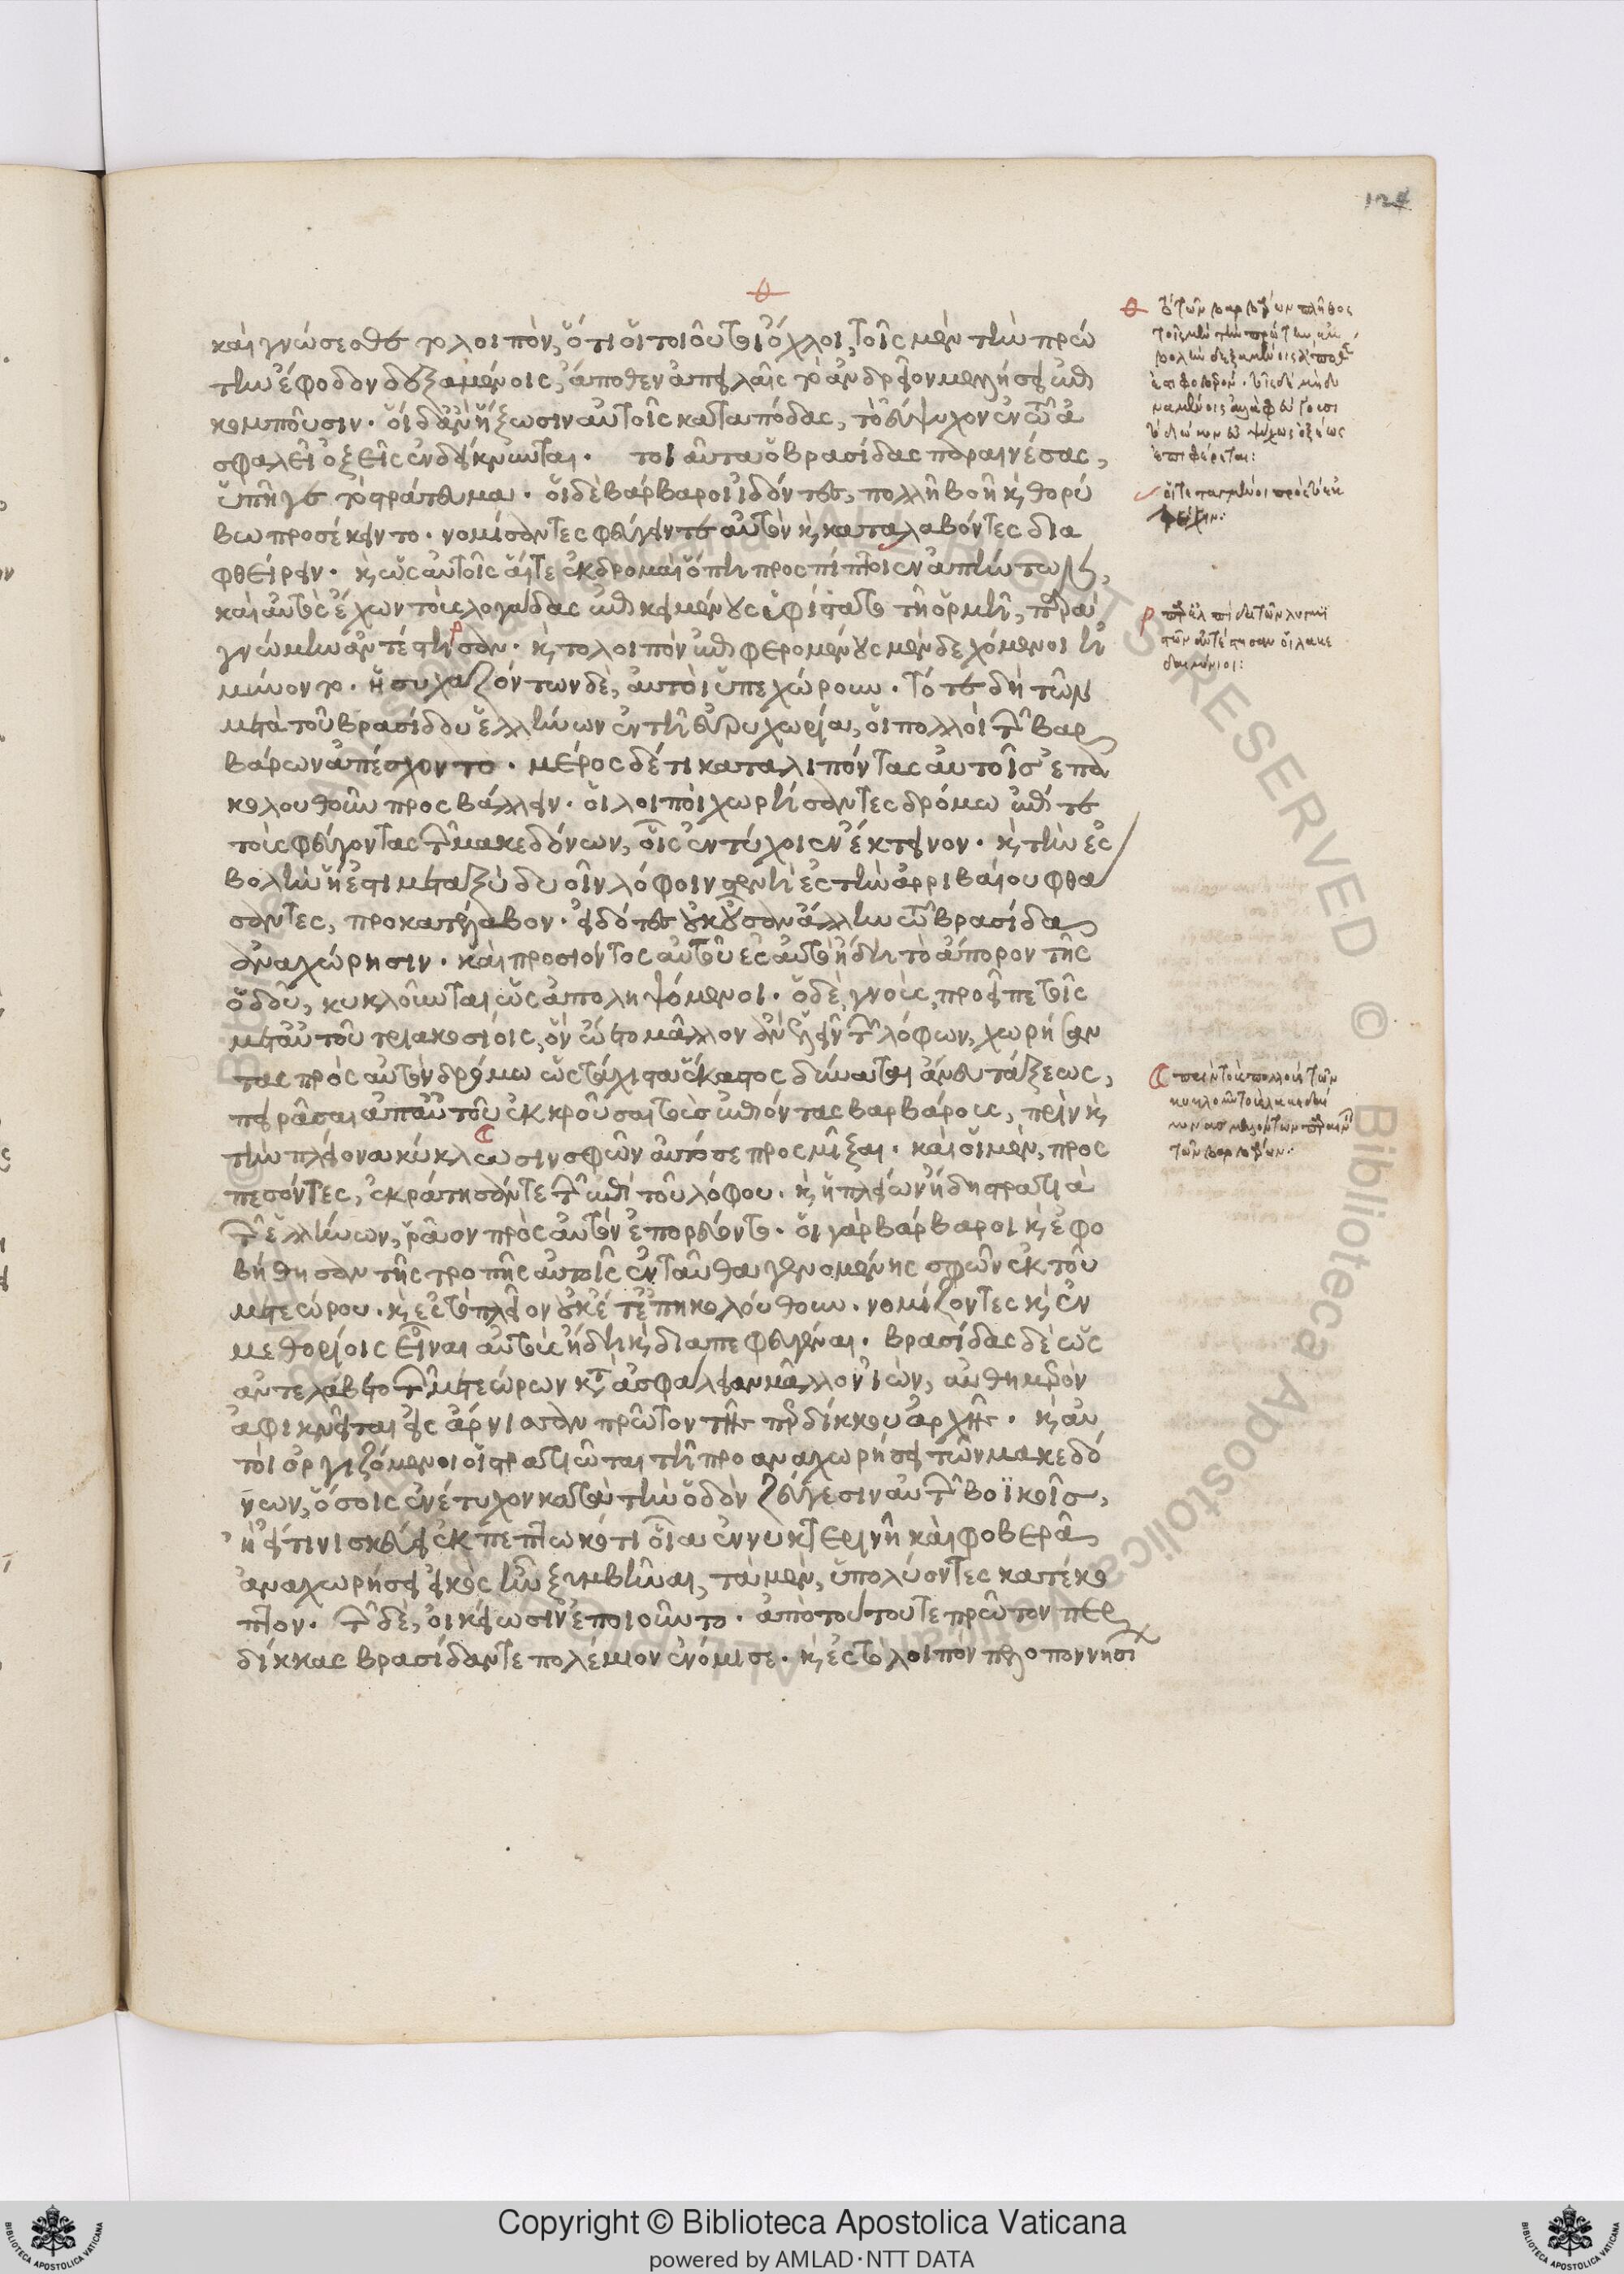 θ
124
καὶ γνώσεσθε τὸ λοιπὸν, ὅτι οἱ τοιοῦτοι ὄχλοι, τοῖς μὲν τὴν πρώ
την ἔφοδον δεξαμένοις, ἄποθεν ἀπειλαῖς τὸ ἀνδρεῖον μελλήσει ἐπι
κομποῦσιν· οἳ δἂν ἤξωσιν αὐτοῖς καταπόδας, τὸ εὔψυχον ἐν τῶ ἀ
σφαλεῖ ὀξεῖς ἐνδείκνυνται· τοιαῦτα ὁ βρασίδας παραινέσας,
ὑπῆγε τὸ στράτευμα· οἱ δὲ βάρβαροι ἰδόντες, πολλῆ βοῆ καὶ θορύ
βω προσέκειντο· νομίσαντες φεύγειν τε αὐτὸν καὶ καταλαβόντες δια
φθείρειν· καὶ ὡς αὐτοῖς αἵ τε ἐκδρομαὶ ὅπη προσπίπτοιεν ἀπήντων,
καὶ αὐτὸς ἔχων τοὺς λογάδας ἐπικειμένους ὑφίστατο τῆ ὁρμῆ, παρὰ
γνώμην ἀντέστησαν· καὶ τολοιπὸν ἐπιφερομένους μὲν δεχόμενοι ἠ
μύνοντο· ἡσυχαζόντων δὲ, αὐτοὶ ὑπεχώρουν· τότε δὴ τῶν
μετὰ τοῦ βρασίδου ἑλλήνων ἐν τῆ εὐρυχωρία, οἱ πολλοὶ τῶν βαρ
βάρων ἀπέσχοντο· μέρος δέ τι καταλιπόντας αὐτοῖς ἐπα
κολουθοῦν προσβάλλειν· οἱ λοιποὶ χωρήσαντες δρόμω ἐπί τε
τοὺς φεύγοντας τῶν μακεδόνων, οἷς ἐντύχοιεν ἔκτεινον· καὶ τὴν ἐσ
βολὴν ἥ ἐστι μεταξὺ δυοῖν λόφοιν στενὴ ἐς τὴν ἀρριβαίου φθά
σαντες, προκατέλαβον· εἰδότες οὐκ οὖσαν ἄλλην τῶ βρασίδα
ἀναχώρησιν· καὶ προσιόντος αὐτοῦ ἐς αὐτὸ ἤδη τὸ ἄπορον τῆς
ὁδοῦ, κυκλοῦνται ὡς ἀποληψόμενοι· ὁ δὲ, γνοὺς, προεῖπε τοῖς
μεθ αὐτοῦ τριακοσίοις, ὃν ᾤετο μᾶλλον ἂν ἑλεῖν τῶν λόφων, χωρήσαν
τας πρὸς αὐτὸν δρόμω ὡς τάχιστα ἕκαστος δύναται ἄνευ τάξεως,
πειρᾶσαι ἀπαὐτοῦ ἐκκροῦσαι τοὺς ἐπιόντας βαρβάρους, πρὶν καὶ
τὴν πλείονα κύκλωσιν σφῶν αὐτόσε προσμῖξαι· καὶ οἱ μὲν, προσ
πεσόντες, ἐκράτησάν τε τῶν ἐπὶ τοῦ λόφου· καὶ ἡ πλείων ἤδη στρατιὰ
τῶν ἑλλήνων, ῥᾶον πρὸς αὐτὸν ἐπορεύοντο· οἱ γὰρ βάρβαροι καὶ ἐφο
βήθησαν τῆς τροπῆς αὐτοῖς ἐνταῦθα γενομένης σφῶν ἐκ τοῦ
μετεώρου· καὶ ἐς τὸ πλεῖον οὐκέτ ἐπηκολούθουν· νομίζοντες καὶ ἐν
μεθορίοις εἶναι αὐτοὺς ἤδη καὶ διαπεφευγέναι· βρασίδας δὲ ὡς
ἀντελάβετο τῶν μετεώρων κατὰ ἀσφάλειαν μᾶλλον ἰὼν, αὐθημερὸν
ἀφικνεῖται εἰς ἄρνισαν πρῶτον τῆς περδίκκου ἀρχῆς· καὶ αὐ
τοὶ ὀργιζόμενοι οἱ στρατιῶται τῆ προαναχωρήσει τῶν μακεδό
νων, ὅσοις ἐνέτυχον κατὰ τὴν ὁδὸν ζεύγεσιν αὐτῶν βοϊκοῖς,
ἢ εἴ τινι σκεύει ἐκπεπτωκότι οἷα ἐν νυκτερινῆ καὶ φοβερᾶ
ἀναχωρήσει εἰκὸς ἦν ξυμβῆναι, τὰ μὲν, ὑπολύοντες κατέκο
πτον· τῶν δὲ, οἰκείωσιν ἐποιοῦντο· ἀπὸ τούτου τε πρῶτον περ
δίκκας βρασίδαν τε πολέμιον ἐνόμισε· καὶ ἐς τὸ λοιπὸν πελοποννησί
θ τὸ τῶν βαρβάρων πλῆθος
τοῖς μὲν τὴν πρώτην
δεξαμένοις
ἐπιφέρεται:
οἱ τεταγμένοι πρὸς τὸ ἐκ
τρέχειν:
ρ παρελπίδα τῶν
ἀντέστησαν οἱ λακε
δαιμόνιοι:
πρὶν τοὺς πολλοὺς τῶν
τῶν βαρβάρων:
Copyright © Biblioteca Apostolica Vaticana
powered by AMLAD·NTT DATA